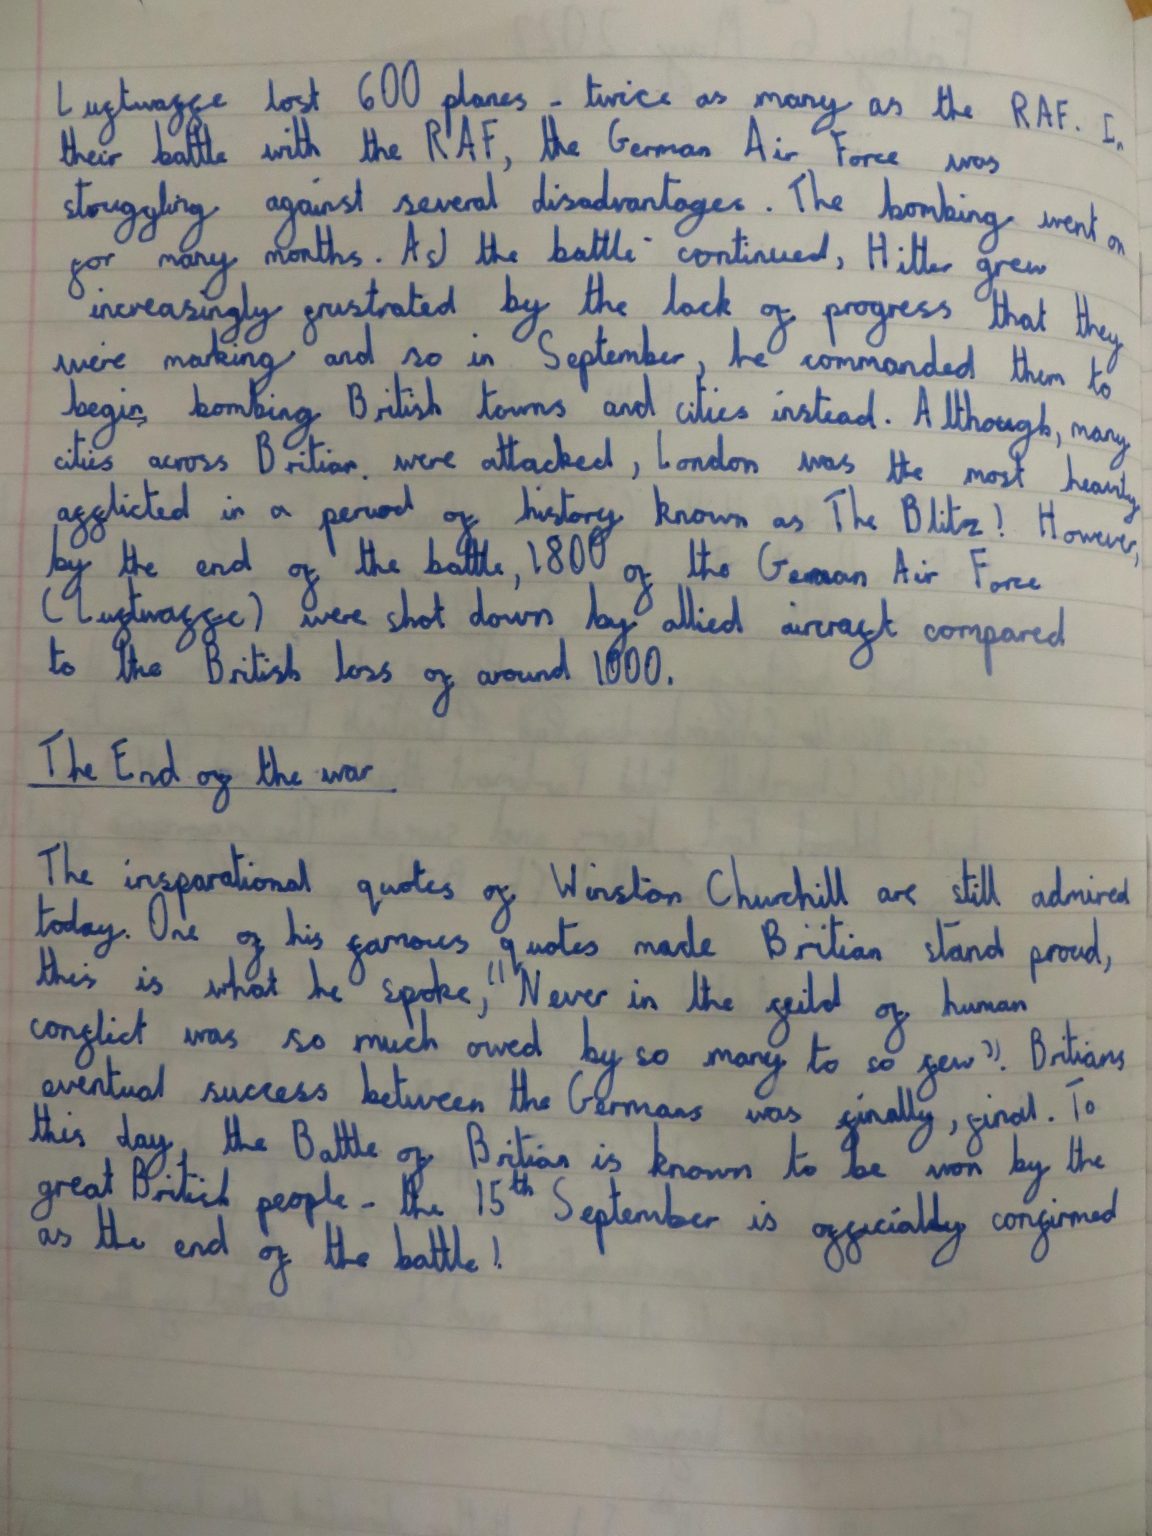 Luftwaffe lost 600 planes - twice as many as the RAF. In
their battle with the RAF, the German Air Force was
struggling against several disadvantages. The bombing went on
for many months. As the battle continued, Hitler grew
increasingly frustrated by the lack of progress that they
were marking and so in September, he commanded them to
begin bombing British towns and cities instead. Although, many
cities across Britian were attacked, London was the most heavily
afflicted in a period of history known as The Blitz! However,
by the end of the battle, 1800 of the German Air Force
(Luftwaffe) were shot down by allied aircraft compared
to the British loss of around 1000.
The End of the war
The insparational quotes of Winston Churchill are still admired
today. One of his famous quotes made Britian stand proud,
this is what he spoke, "Never in the feild of human
conflict was so much owed by so many to so few". Britians
eventual success between the Germans was finally, final. To
this day, the Battle of Britian is known to be won by the
great British people - the 15th September is officially confirmed
as the end of the battle!